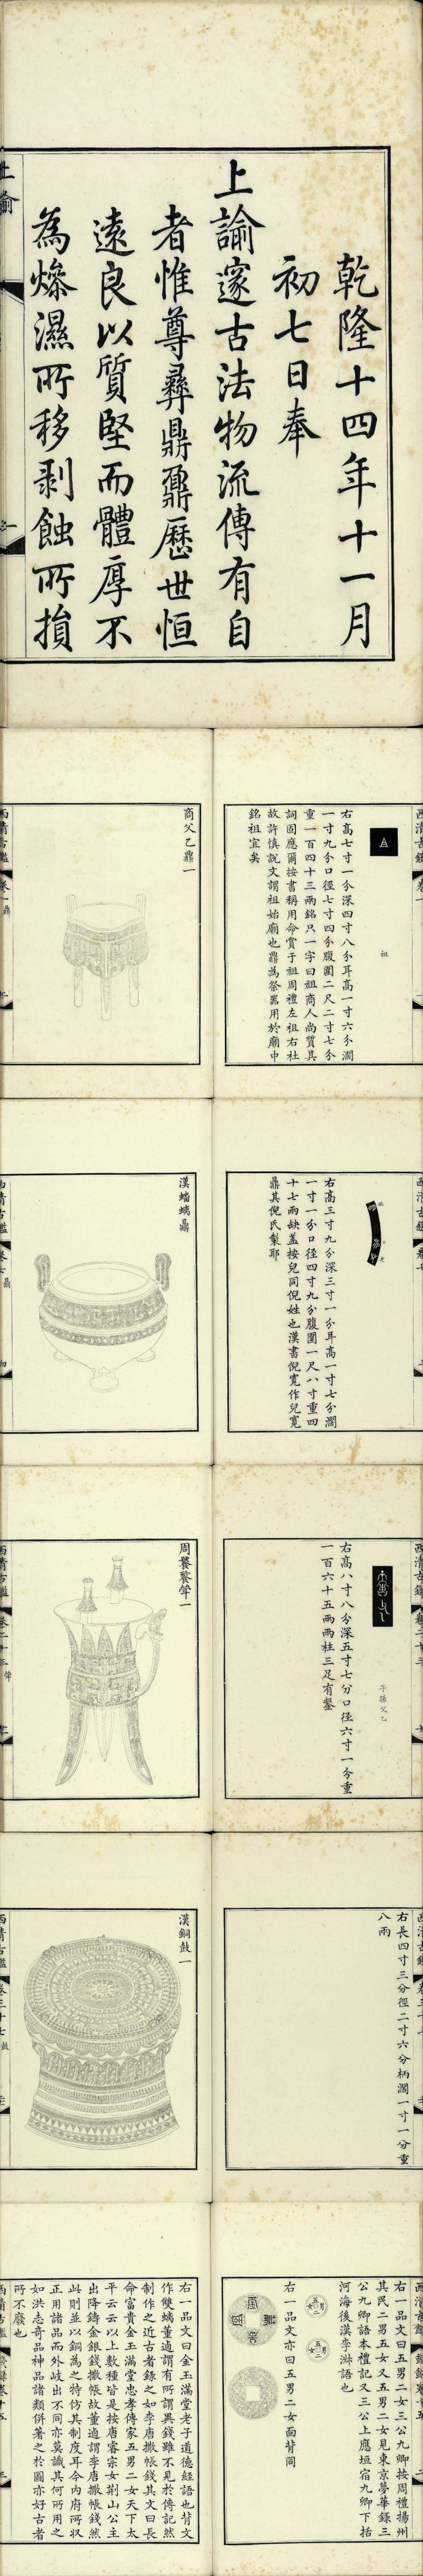 乾隆十四年十一月
初七日奉
上諭邃古法物流傳有自
者惟尊彝鼎鼐歷世恒
遠良以質堅而體厚不
為燥濕所移剥蝕所損
上諭
一
西清古鑑
卷一
祖
右高七寸一分深四寸八分耳高一寸六分濶
一寸九分口徑七寸四分腹圍二尺二寸七分
重一百四十三兩銘只一字曰祖商人尚質其
詞固應爾按書稱用命賞于祖周禮左祖右社
故許慎說文謂祖始廟也鼎為祭器用於廟中
銘祖宜矣
商父乙鼎一
西清古鑑
卷一 鼎
西清古鑑
右高三寸九分深三寸一分耳高一寸七分濶
一寸一分口徑四寸九分腹圍一尺八寸重四
十七兩缺蓋按兒同倪姓也漢書倪寬作兒寬
鼎其倪氏製耶
漢蟠螭鼎
西清古鑑
鼎
西清古鑑
卷二十三
子孫父乙
右高八寸八分深五寸七分口徑六寸一分重
一百六十五兩兩柱三足有鋬
周饕餮斝一
西清古鑑
卷二十三 斝
西清古鑑
卷三十七
右長四寸三分徑二寸六分柄濶一寸一分重
八兩
漢銅鼓一
西清古鑑
卷三十七 鼓
西清古鑑
右一品文曰五男二女三公九卿按周禮揚州
其民二男五女又五男二女見東京夢華錄三
公九卿語本禮記又三公上應垣宿九卿下括
河海後漢李淵語也
右一品文亦曰五男二女面背同
右一品文曰金玉滿堂老子道德經語也背文
作雙螭董逌謂有所謂異錢雖不見於傳記然
制作之近古者錄之如李唐撒帳錢其文曰長
命富貴金玉滿堂忠孝傳家五男二女天下太
平云云以上數種皆是按唐睿宗女荆山公主
出降鑄金銀錢撒帳故董逌謂李唐撒帳錢然
此則並以銅為之特仿其制度耳今內府所收
正用諸品而外岐出不同亦莫識其何所用之
如洪志奇品神品諸類併著之於圖亦好古者
所不廢也
西清古鑑